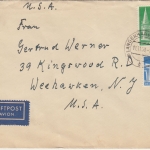 U.S.A.
Frau
Gertrud Werner
39 Kingswood R.D
Weehawken, N.Y
U.S.A.
LUFTPOST
AVION